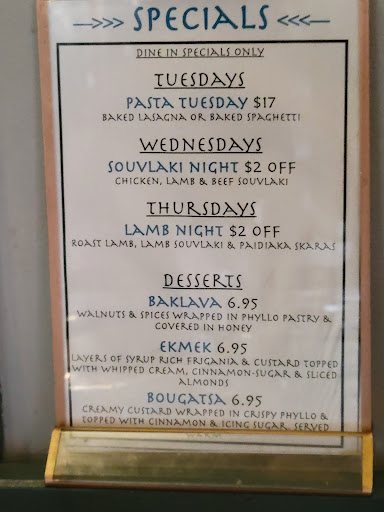 SPECIALS
DINE IN SPECIALS ONLY
TUESDAYS
PASTA TUESDAY $17
BAKED LASAGNA OR BAKED SPAGHETTI
WEDNESDAYS
SOUVLAKI NIGHT $2 OFF
CHICKEN, LAMB & BEEF SOUVLAKI
THURSDAYS
LAMB NIGHT $2 OFF
ROAST LAMB, LAMB SOUVLAKI & PAIDIAKA SKARAS
DESSERTS
BAKLAVA 6.95
WALNUTS & SPICES WRAPPED IN PHYLLO PASTRY &
COVERED IN HONEY
EKMEK 6.95
LAYERS OF SYRUP RICH FRIGANIA & CUSTARD TOPPED
WITH WHIPPED CREAM, CINNAMON-SUGAR & SLICED
ALMONDS
BOUGATSA 6.95
CREAMY CUSTARD WRAPPED IN CRISPY PHYLLO &
TOPPED WITH CINNAMON & ICING SUGAR. SERVED
WARM